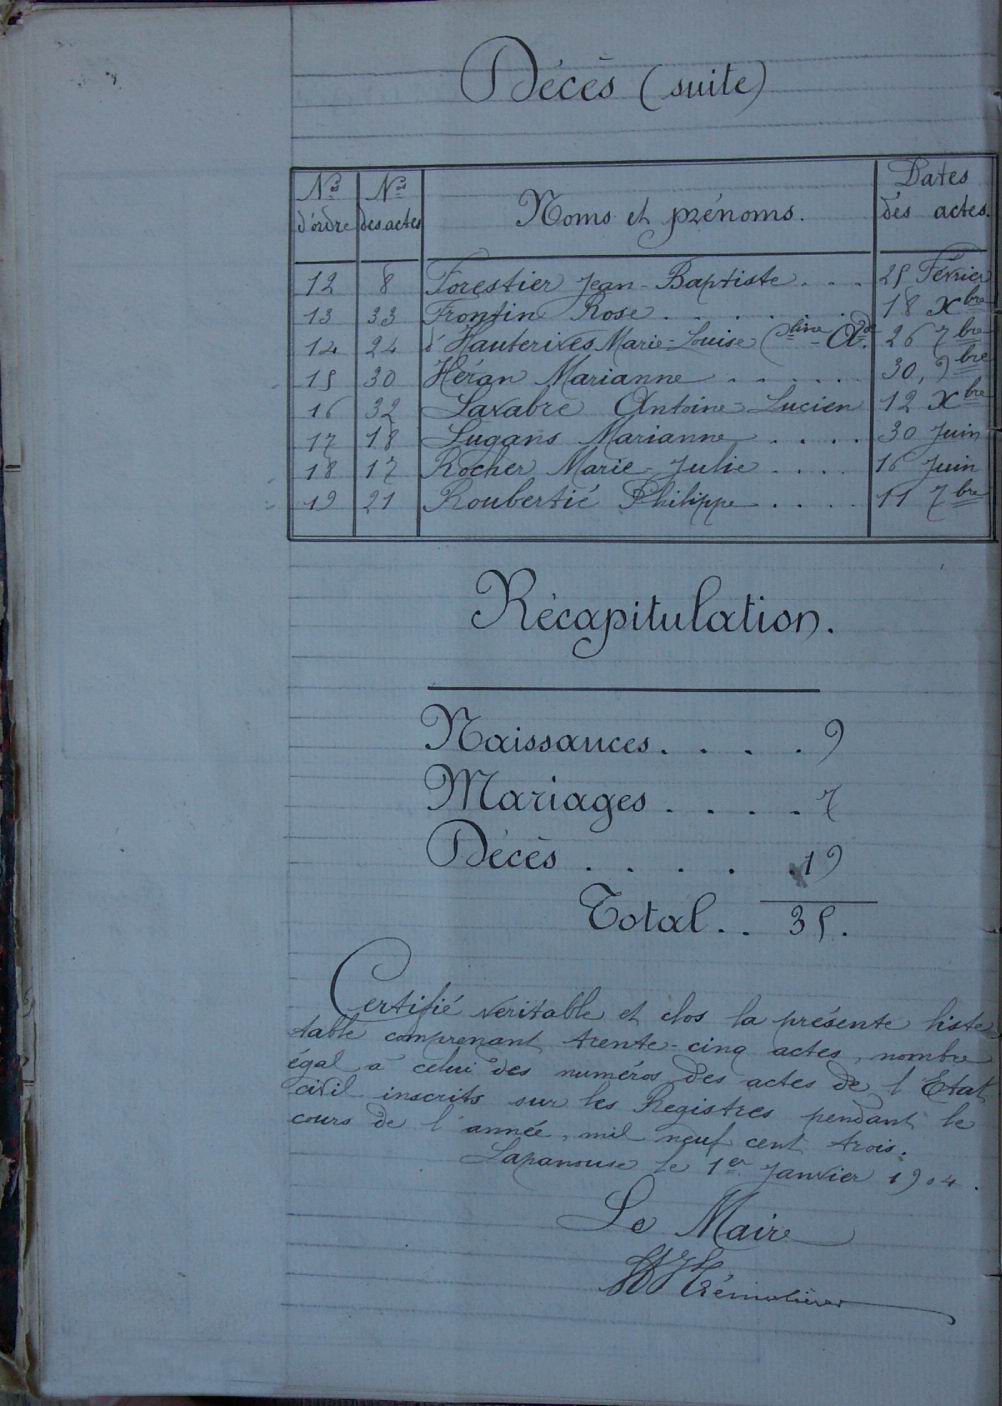 Décès (suite)
Nos d'ordre Nos des actes Noms et prénoms. Dates des actes.
12 8 Forestier Jean-Baptiste . . . 25 Février
13 33 Frontin Rose . . . . . . . 18 Xbre
14 24 d'Hauterives Marie-Louise 26 7bre
15 30 Héran Marianne . . . . . 30, 9bre
16 32 Lavabre Antoine Lucien 12 Xbre
17 18 Lugans Marianne . . . . 30 Juin
18 17 Rocher Marie-Julie . . . . 16 Juin
19 21 Roubertié Philippe . . . . 11 7bre
Récapitulation.
Naissances. . . . . 9
Mariages . . . . . 7
Décès . . . . . 19
Total . . 35.
Certifié véritable et clos la présente liste
table comprenant trente-cinq actes, nombre
égal à celui des numéros des actes de l'Etat
civil inscrits sur les Registres pendant le
cours de l'année, mil neuf cent trois.
Lapanouse le 1er Janvier 1904.
Le Maire